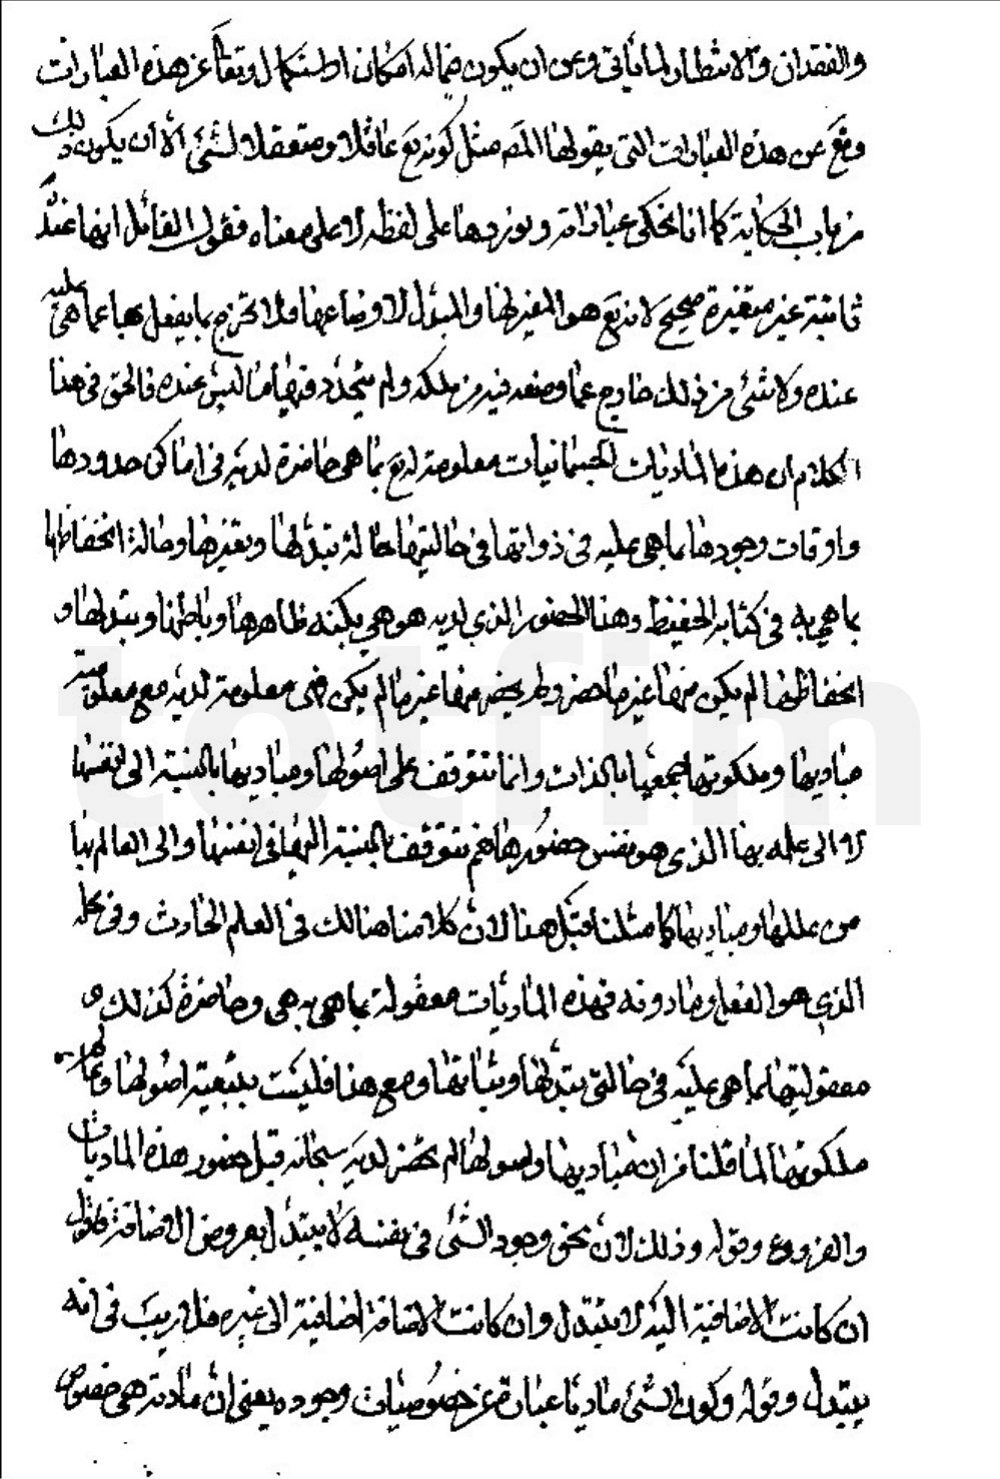 والفقدان والانتظار لما يأتى وعن ان يكون فيما له امكان او استكمال وتعا عن هذه العبارات
وتع عن هذه العبارات التى يقولها المص مثل كونه تع عاقلا ومتعقلا لشئ الا ان يكون ذلك
من باب الحكاية كما انا نحكى عباراته ونوردها على لفظه لا على معناه فقول القائل انها عنده
ثابتة غير متغيرة صحيح لانه تع هو المغير لها والمبدل لاوضاعها فلا تخرج بما يفعل بها عما هى عليه
عنده ولا شئ من ذلك خارج عما وضعه فيه من ملكه ولم يتجدد فيها ما ليس عنده فالحق فى هذا
الكلام ان هذه الماديات الجسمانيات معلومة له تع بما هى حاضرة لديه فى اماكن حدودها
واوقات وجودها بما هى عليه فى ذواتها فى حالتيها حالة تبدلها وتغيرها وحالة انحفاظها
بما هى به فى كتابه الحفيظ وهذا الحضور الذي لديه هو هى بكنه ظاهرها وباطنها وتبدلها و
انحفاظها لم يكن منها غير ما حضر ولم يحضر منها غير ما لم يكن فهى معلومة لديه مع معلومية
مباديها وملكوتها جميعها بالذات وانما تتوقف على اصولها ومباديها بالنسبة الى انفسها
لا الى علمه بها الذى هو نفس حضورها نعم تتوقف بالنسبة اليها فى انفسها والى العالم بها
من عللها ومباديها كما مثلنا قبل هذا لان كلامنا هنالك فى العلم الحادث وفى محله
الذي هو الفعل وما دونه فهذه الماديات معقولة بما هى به هى وحاضرة كذلك و
معقوليتها بما هى عليه فى حالتى تبدلها وثباتها ومع هذا فليست بتبعية اصولها و
ملكوتها لما قلنا من ان مباديها واصولها لم تحضر لديه سبحانه قبل حضور هذه الماديات
والفروع وقوله وذلك لان نحو وجود الشئ فى نفسه لا يتبدل بعروض الاضافة فاقول
ان كانت الاضافية اليه لا يتبدل وان كانت الاضافة اضافية الى غيره فلا ريب فى انه
يتبدل وقوله وكون الشئ ماديا عبارة عن خصوصيات وجوده يعنى ان مادته هى خصوص
totfim